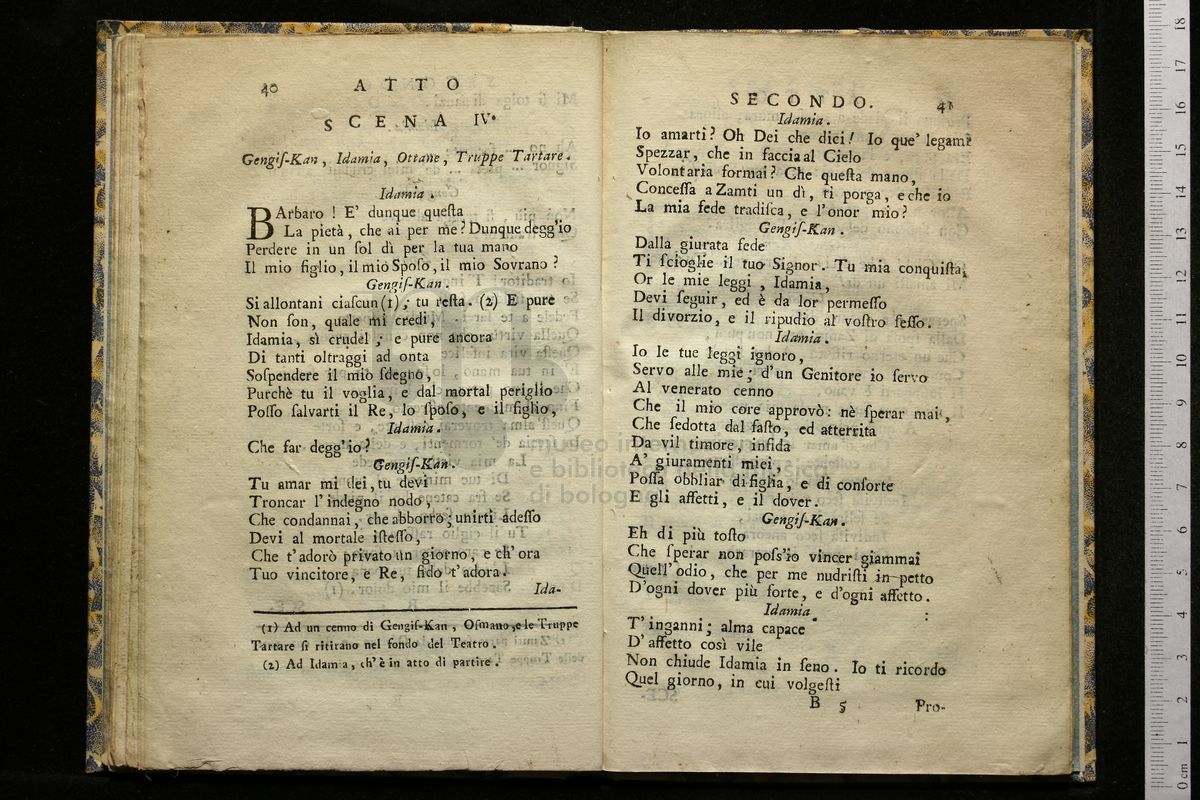 40 ATTO
SCENA IV.
Gengiſ-Kan, Idamia, Ottane, Truppe Tartare.
Idamia.
BArbaro! E' dunque queſta
La pietà, che ai per me? Dunque degg'io
Perdere in un ſol dì per la tua mano
Il mio figlio, il mio Spoſo, il mio Sovrano?
Gengiſ-Kan.
Si allontani ciaſcun (1); tu reſta. (2) E pure
Non ſon, quale mi credi,
Idamia, sì crudel; e pure ancora
Di tanti oltraggi ad onta
Soſpendere il mio ſdegno,
Purchè tu il voglia, e dal mortal periglio
Poſſo ſalvarti il Re, lo ſpoſo, e il figlio,
Idamia.
Che far degg'io?
Gengiſ-Kan.
Tu amar mi dei, tu devi
Troncar l'indegno nodo,
Che condannai, che abborro; unirti adeſſo
Devi al mortale iſteſſo,
Che t'adorò privato un giorno, e ch'ora
Tuo vincitore, e Re, fido t'adora.
Ida-
(1) Ad un cenno di Gengiſ-Kan, Oſmano, e le Truppe
Tartare ſi ritirano nel fondo del Teatro.
(2) Ad Idamia, ch'è in atto di partire.
SECONDO. 41
Idamia.
Io amarti? Oh Dei che dici! Io que' legami
Spezzar, che in faccia al Cielo
Volontaria formai? Che queſta mano,
Conceſſa a Zamti un dì, ti porga, e che io
La mia fede tradiſca, e l'onor mio?
Gengiſ-Kan.
Dalla giurata fede
Ti ſcioglie il tuo Signor. Tu mia conquiſta,
Or le mie leggi, Idamia,
Devi ſeguir, ed è da lor permeſſo
Il divorzio, e il ripudio al voſtro ſeſſo.
Idamia.
Io le tue leggi ignoro,
Servo alle mie; d'un Genitore io ſervo
Al venerato cenno
Che il mio core approvò: nè ſperar mai,
Che ſedotta dal faſto, ed atterrita
Da vil timore, infida
A' giuramenti miei,
Poſſa obbliar di figlia, e di conſorte
E gli affetti, e il dover.
Gengiſ-Kan.
Eh di più toſto
Che ſperar non poſs'io vincer giammai
Quell'odio, che per me nudriſti in petto
D'ogni dover più forte, e d'ogni affetto.
Idamia.
T'inganni; alma capace
D'affetto così vile
Non chiude Idamia in ſeno. Io ti ricordo
Quel giorno, in cui volgeſti
B 5 Pro-
museo
e biblioteca
di bologna
0 cm 1 2 3 4 5 6 7 8 9 10 11 12 13 14 15 16 17 18